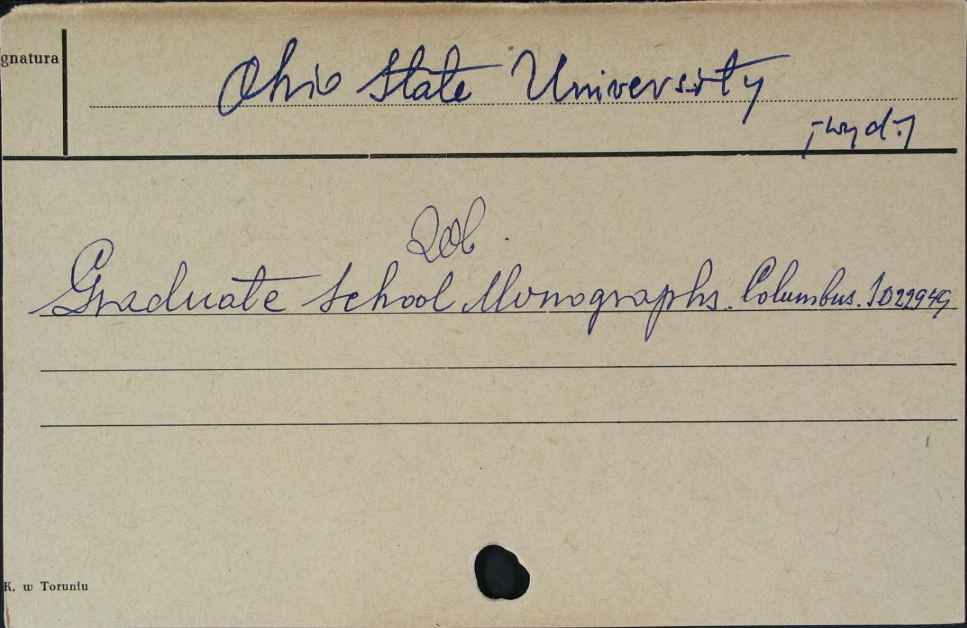 gnatura
Ohio State University
[wyd.]
Zob.
Graduate School Monographs. Columbus. ID22949
K. w Toruniu